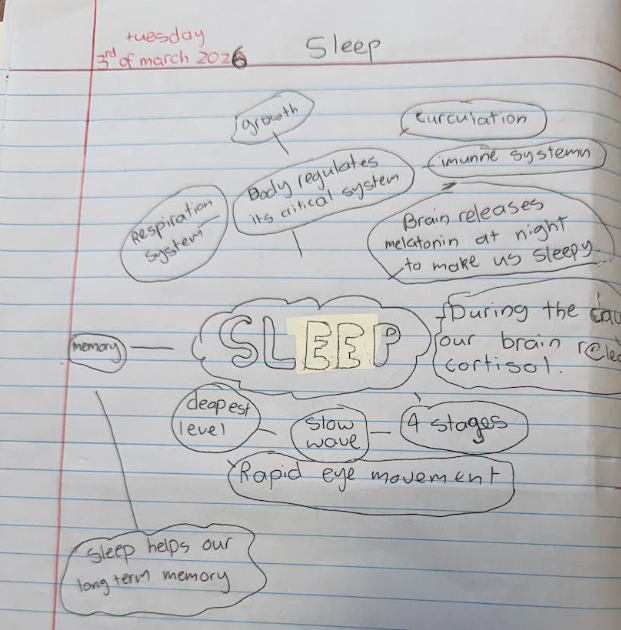 tuesday
3rd of march 2026
Sleep
growth
curculation
imunne systemn
Body regulates
its critical system
Respiration
system
Brain releases
melatonin at night
to make us sleepy
SLEEP
During the
our brain
cortisol.
memory
deapest
level
slow
wave
4 stages
Rapid eye movement
Sleep helps our
long term memory